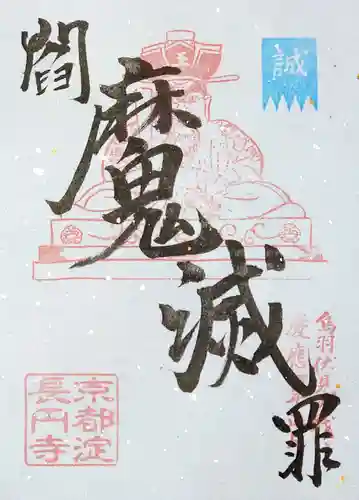 誠
王
閻魔滅罪
鳥羽伏見
慶應
京都淀
長円寺